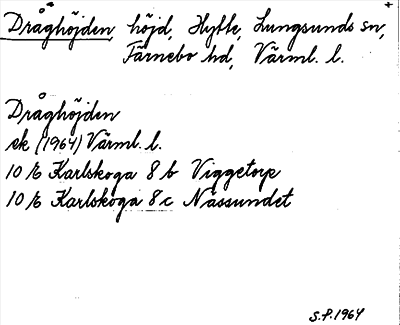 Dråghöjden, höjd, Hytte, Lungsunds sn,
Färnebo hd, Värml. l.
Dråghöjden
ek (1964) Värml. l.
10 E Karlskoga 8 b Viggetorp
10 E Karlskoga 8 c Nässundet
S.P. 1964